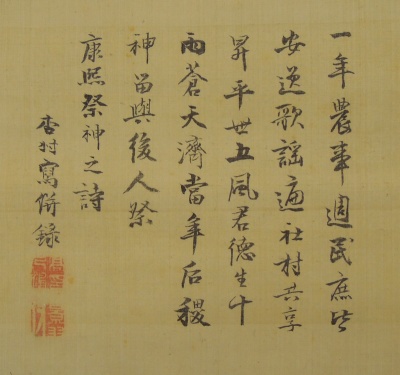 一年農事週民庶皆
安逸歌謠遍社村共享
昇平世五風君德生十
雨蒼天濟當年后稷
神留與後人祭
康熙祭神之詩
杏村寫併錄